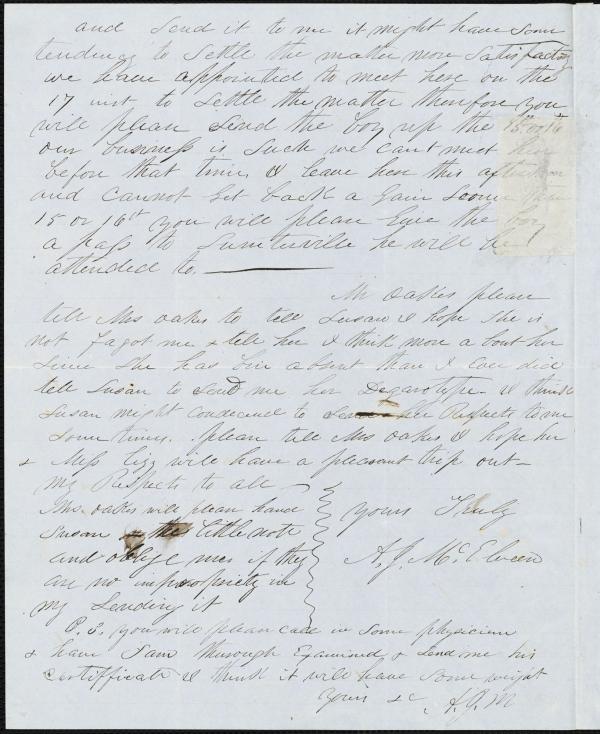 and send it to me it might have some
tendency to settle the matter more satisfactory
we have appointed to meet here on the
17 inst. to settle the matter therefore you
will please send the boy up the 15 or 16
our business is such we cant meet
before that time. I leave here this afternoon
and cannot get back a gain sooner than
15 or 16th you will please give the boy
a pass to Sumterville he will be
attended to.
Mr Oakes please
tell Mrs Oakes to tell Susan I hope she is
not fagot me & tell her I think more a bout her
since she has bin absent than I ever did
tell Susan to send me her Degarotype. I think
Susan might condecend to send her Respects to me
some times. please tell Mrs Oakes I hope her
& Miss Lizz will have a pleasant trip out—
my Respects to all
Mrs. Oakes will please hand
Susan the little note
and oblige me. if they
are no impropriety in
my sending it
Yours Truly
A. J. McElveen
P. S. you will please call in some physician
& have Sam thorough Examined & send me his
certifficate I think it will have some weight
Yours &c A. J. M